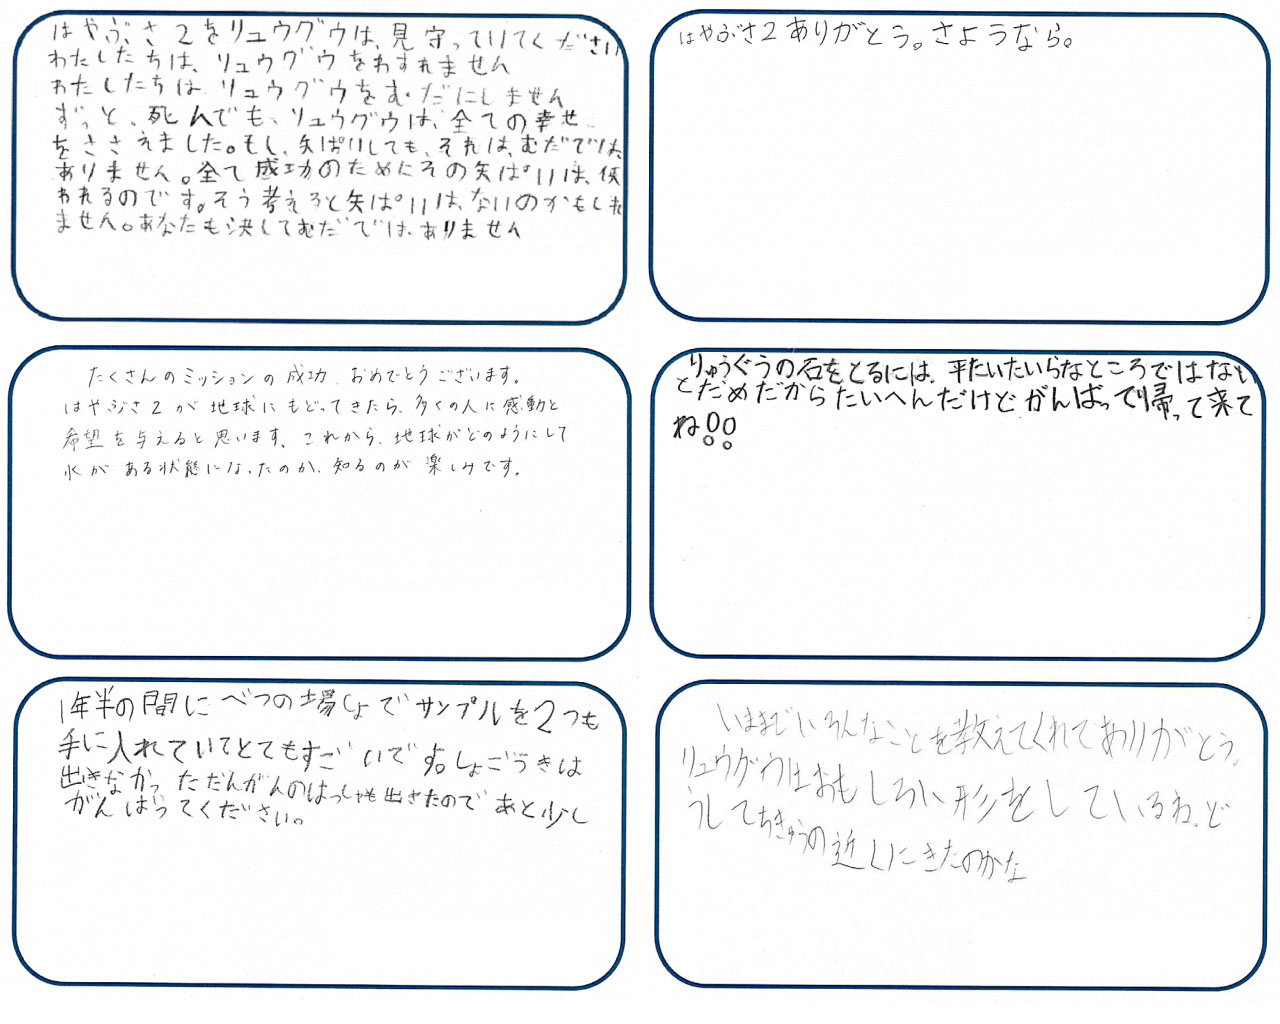 はやぶさ2をリュウグウは、見守っていてください
わたしたちは、リュウグウをわすれません
わたしたちは、リュウグウをむだにしません
ずっと、死んでも、リュウグウは、全ての幸せ
をささえました。もし、失ぱいしても、それは、むだでは、
ありません。全て感功のためにその失ぱいは、使
われるのです。そう考えると失ぱいは、ないのかもしれ
ません。あなたも決してむだでは、ありません
はやぶさ2ありがとう。さようなら。
たくさんのミッションの成功、おめでとうございます。
はやぶさ2が地球にもどってきたら、多くの人に感動と
希望を与えると思います、これから、地球がどのようにして
水がある状態になったのか、知るのが楽しみです。
りゅうぐうの石をとるには、平たいたいらなところではない
とだめだからたいへんだけどがんばって帰って来て
ね!!
1年半の間にべつの場しょでサンプルを2つも
手に入れていてとてもすごいです。しょごうきは
出きなかっただんがんのはっしゃも出きたのであと少し
がんばってください。
いままでいろんなことを教えてくれてありがとう。
リュウグウはおもしろい形をしているね。ど
うしてちきゅうの近くにきたのかな